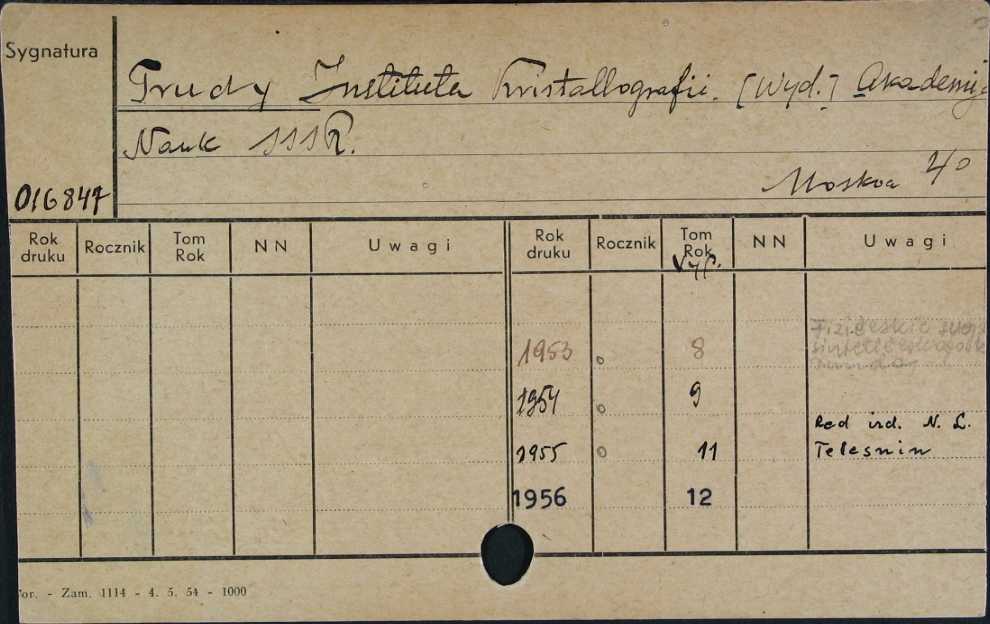 Sygnatura
Trudy Instituta Kristallografii. [Wyd.] Akademij
Nauk SSSR.
Moskva 4°
016847
Rok druku Rocznik Tom Rok NN Uwagi Rok druku Rocznik Tom Rok NN Uwagi
Vyp.
Fizičeskie
1953 o 8
1954 o 9
Red izd. N. L.
1955 o 11 Telesnin
1956 12
or. - Zam. 1114 - 4. 5. 54 - 1000